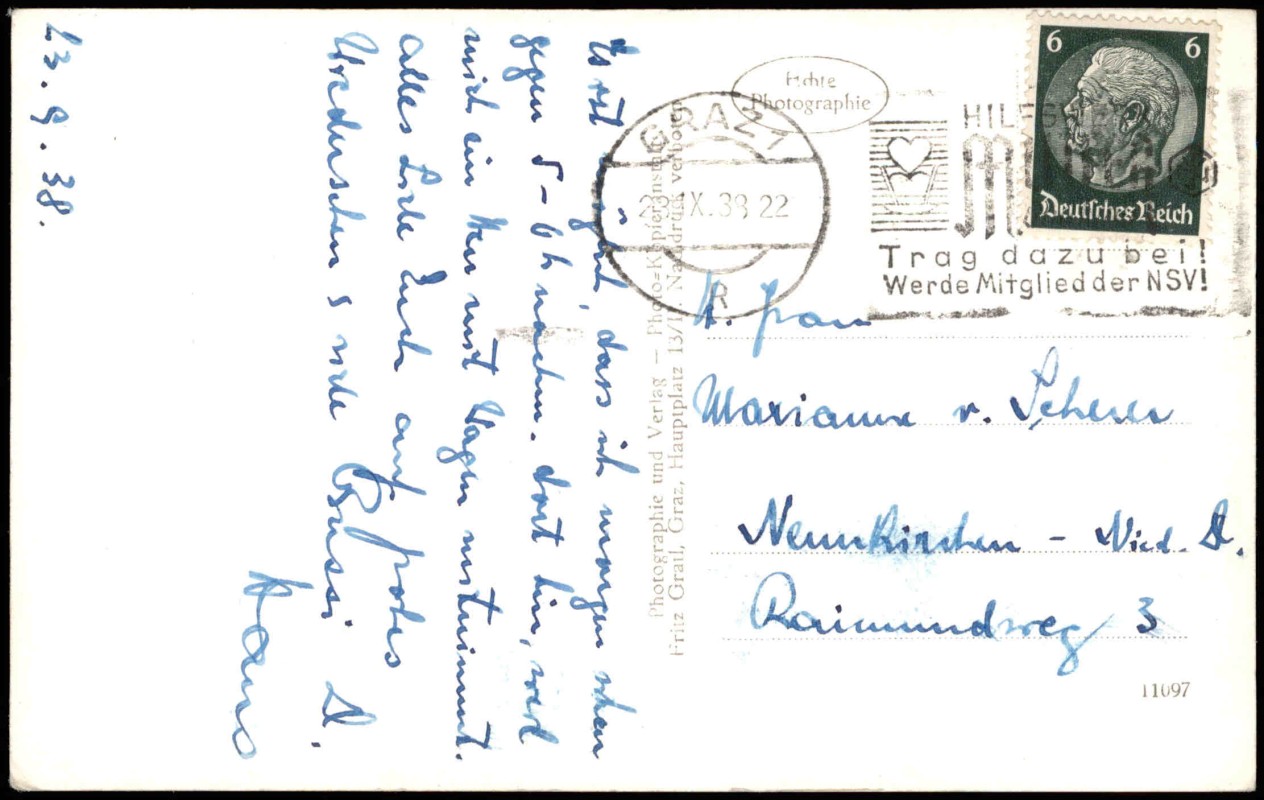 23. 9. 38.
Es ist möglich, dass ich morgen schon
gegen 5-6h nachm. dort bin, weil
mich ein Herr mit Wagen mitnimmt.
alles Liebe Euch auf frohes
Wiedersehen s viele Bussi D.
Hans
Photographie und Verlag — Photo=Kopieranstalt
Fritz Grail, Graz, Hauptplatz 13/II. Nachdruck verboten
Echte
Photographie
GRAZ 1
IX.38 22
R
HILFSWERK
Trag dazu bei!
Werde Mitglied der NSV!
6 6
Deutsches Reich
H. Frau
Marianne v. Scherer
Neunkirchen - Nied. D.
Raimundweg 3
11097